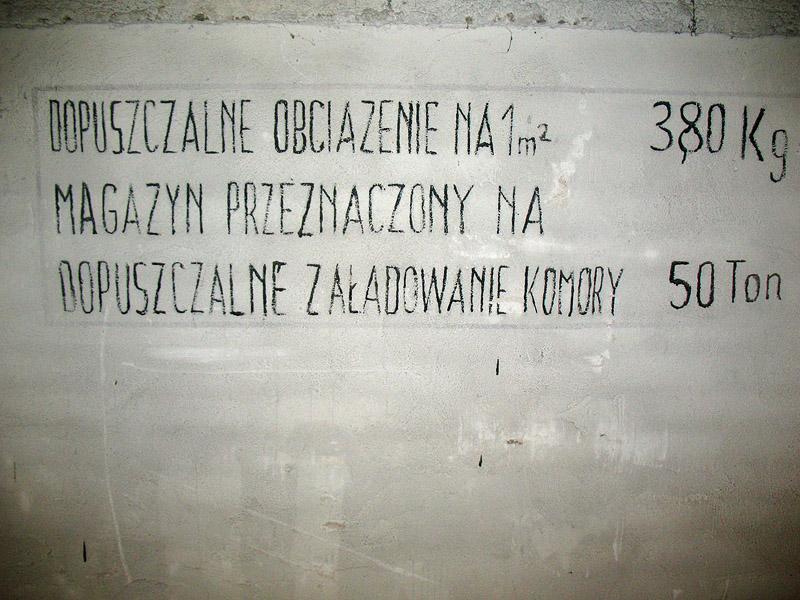 DOPUSZCZALNE OBCIAZENIE NA 1m² 380 Kg
MAGAZYN PRZEZNACZONY NA
DOPUSZCZALNE ZAŁADOWANIE KOMORY 50 Ton